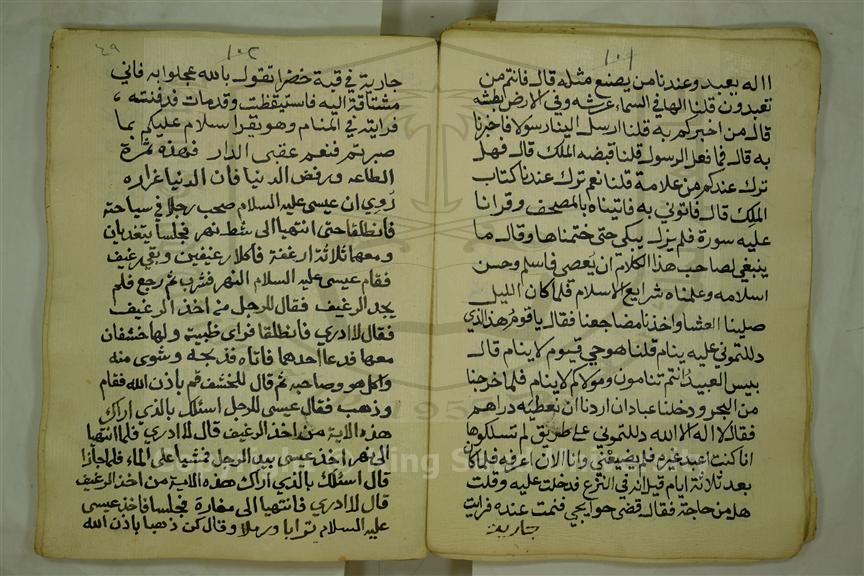 ١٠١
االه يعبد وعندنا من يصنع مثله قال فانتم من
تعبدون قلنا الها في السماء عرشه وفي الارض بطشه
قال من اخبركم به قلنا ارسل الينا رسولا فاخبرنا
به قال فما فعل الرسول قلنا قبضه الملك قال فهل
ترك عندكم من علامة قلنا نعم ترك عندنا كتاب
الملك قال فاتوني به فاتيناه بالمصحف وقرانا
عليه سورة فلم يزل يبكي حتى ختمناها وقال ما
ينبغي لصاحب هذا الكلام ان يعصي فاسلم وحسن
اسلامه وعلمناه شرايع الاسلام فلما كان الليل
صلينا العشا واخذنا مضاجعنا فقال ياقوم هذا الذي
دللتموني عليه ينام قلنا هو حي قيوم لا ينام قال
بيس العبيد انتم تنامون ومولاكم لا ينام فلما خرجنا
من البحر ودخلنا عبادان اردنا ان نعطيه دراهم
فقال لا اله الا الله دللتموني على طريق لم تسلكوها
انا كنت اعبد غيره فلم يضيعني وانا الان اعرفه فلما كان
بعد ثلاثة ايام قيل انه في النزع فدخلت عليه وقلت
هل من حاجة فقال قضى حوايجي فنمت عنده فرايت
جارية
١٠٢
٤٩
جارية في قبة خضرا تقول بالله عجلوا به فاني
مشتاقة اليه فاستيقظت وقد مات فدفنته
فرايته في المنام وهو يقرا سلام عليكم بما
صبرتم فنعم عقبى الدار فهذه ثمرة
الطاعه ورفض الدنيا فان الدنيا غراره
روي ان عيسى عليه السلام صحب رجلا في سياحته
فانطلقا حتى انتهيا الى شط نهر فجلسا يتغديان
ومعهما ثلاثة ارغفة فاكلا رغيفين وبقي رغيف
فقام عيسى عليه السلام النهر فشرب ثم رجع فلم
يجد الرغيف فقال للرجل من اخذ الرغيف
فقال لا ادري فانطلقا فراى ظبية ولها خشفان
معها فدعا احدهما فاتاه فذبحه وشوى منه
واكل هو وصاحبه ثم قال للخشف قم باذن الله فقام
وذهب فقال عيسى للرجل اسئلك بالذي اراك
هذه الاية من اخذ الرغيف قال لا ادري فلما انتهيا
الى نهر اخذ عيسى بيد الرجل فمشيا على الماء فلما جازا
قال اسئلك بالذي اراك هذه الاية من اخذ الرغيف
قال لا ادري فانتهيا الى مفازة فجلسا فاخذ عيسى
عليه السلام ترابا ورملا وقال كن ذهبا باذن الله